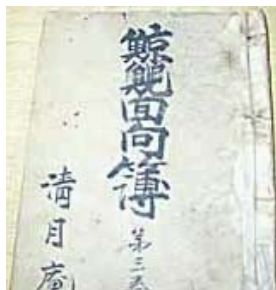 鯨鯢囬向簿
第三
清月庵